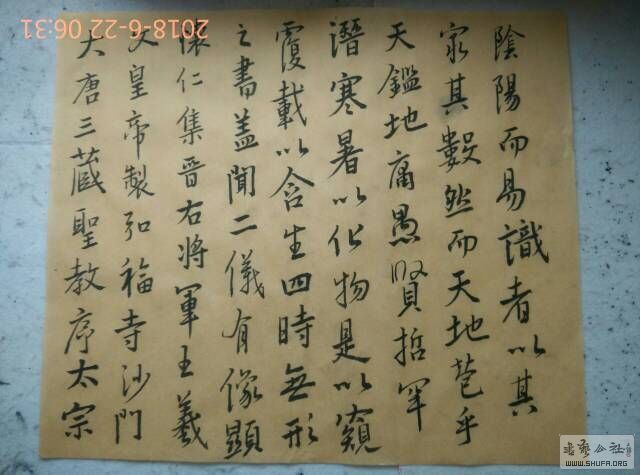 大唐三藏聖教序太宗
文皇帝製弘福寺沙門
懷仁集晉右將軍王羲
之書盖聞二儀有像顯
覆載以含生四時無形
潛寒暑以化物是以窺
天鑑地庸愚賢哲罕
窮其數然而天地苞乎
陰陽而易識者以其
2018-6-22 06:31
書藝公社
WWW.SHUFA.ORG